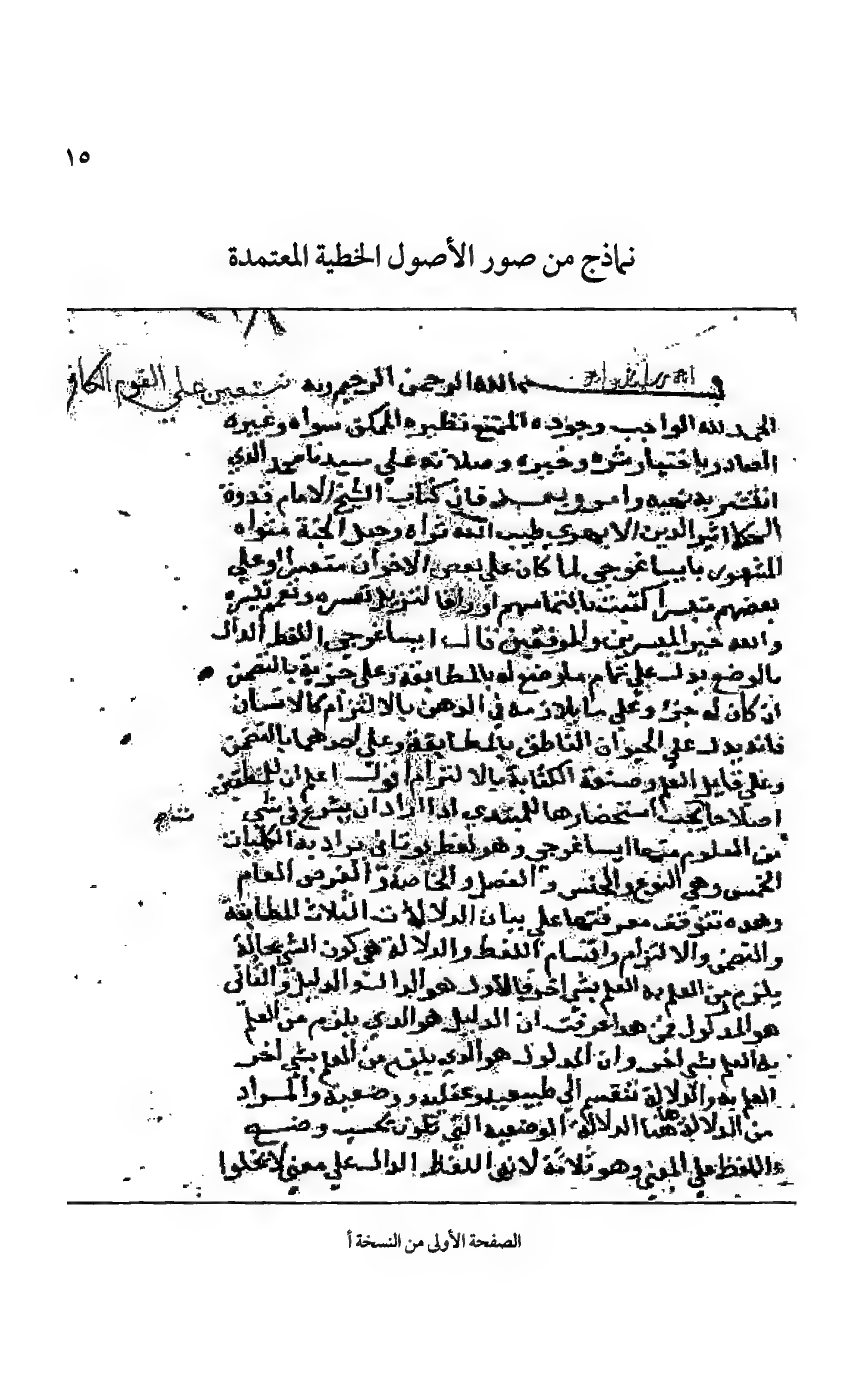 ١٥
نماذج من صور الأصول الخطية المعتمدة
بسم الله الرحمن الرحيم وبه نستعين على القوم الكافر
الحمد لله الواجب وجوده الممتنع نظيره الممكن سواه وغيره
الصادر باختياره شره وخيره وصلاته علي سيدنا محمد الذي
وبعد فان كتاب الشيخ الامام قدوة
الحكما اثير الدين الابهري طيب الله ثراه وجعل الجنة مثواه
المشهور بايساغوجي لما كان علي بعض الاخوان متعسرا وعلي
بعضهم متيسرا كتبت بالتماسهم اوراقا لتزيل تعسره وتعم تيسره
والله خير الميسرين والموفقين قال ايساغوجي اللفظ الدال
بالوضع يدل علي تمام ما وضع له بالمطابقة وعلي جزئه بالتضمن
ان كان له جزء وعلي ما يلازمه في الذهن بالالتزام كالانسان
فانه يدل علي الحيوان الناطق بالمطابقة وعلي احدهما بالتضمن
وعلي قابل العلم وصنعة الكتابة بالالتزام اقول اعلم ان للمنطقيين
اصطلاحا يجب استحضارها للمبتدي اذا اراد ان يشرع في شي
من العلوم منها ايساغوجي وهو لفظ يوناني يراد به الكليات
الخمس وهي النوع والجنس والفصل والخاصة والعرض العام
وهذه تتوقف معرفتها علي بيان الدلالات الثلاث المطابقة
والتضمن والالتزام واقسام اللفظ والدلالة هي كون الشي بحالة
يلزم من العلم به العلم بشي اخر فالاول هو الدال والدليل والثاني
هو المدلول فمن هذا عرفت ان الدليل هو الذي يلزم من العلم
به العلم بشي اخر وان المدلول هو الذي يلزم من العلم بشي اخر
العلم به والدلالة تنقسم الي طبيعية وعقلية ووضعية والمراد
من الدلالة هنا الدلالة الوضعية التي تكون بحسب وضع
اللفظ علي المعني وهو ثلاثة لان اللفظ الدال علي معني لا يخلوا
الصفحة الأولى من النسخة أ